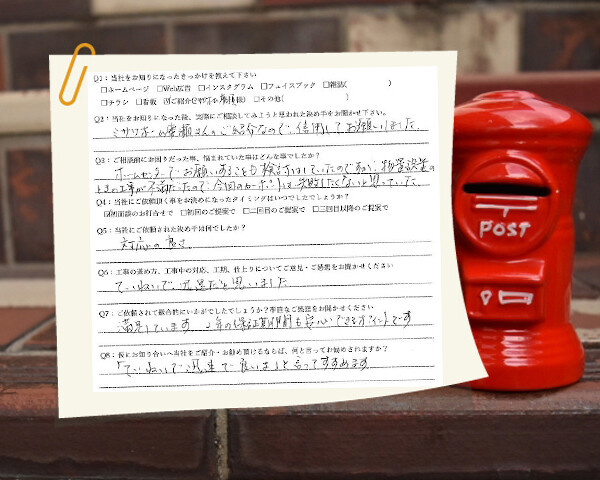 Q1：当社をお知りになったきっかけを教えて下さい
□ホームページ □Web広告 □インスタグラム □フェイスブック □雑誌( )
□チラシ □看板 ☑ご紹介( 様) □その他( )
Q2：当社をお知りになった後、実際にご相談してみようと思われた決め手をお聞かせ下さい。
ミサワホーム さんのご紹介なので、信用してお願いしました。
Q3：ご相談前にお困りだった事、悩まれていた事はどんな事でしたか？
ホームセンターでお願いすることも検討はしていたのであるが、物置設置の
ときの工事が不満だったので今回のカーポートは失敗したくないと思っていた
Q4：当社にご依頼頂く事をお決めになったタイミングはいつでしたでしょうか？
☑初回面談のお打合せで □初回のご提案で □二回目のご提案で □三回目以降のご提案で
Q5：当社にご依頼された決め手は何でしたか？
対応の良さ
Q6：工事の進め方、工事中の対応、工期、仕上りについてご意見・ご感想をお聞かせください
ていねいで、迅速だと思いました
Q7：ご依頼されて総合的にいかがでしたでしょうか？率直なご感想をお聞かせください
満足しています。2年の保証期間も安心できるポイントです
Q8：仮にお知り合いへ当社をご紹介・お勧め頂けるならば、何と言ってお勧めされますか？
「ていねいで、迅速で、良いよ」と言ってすすめます
POST